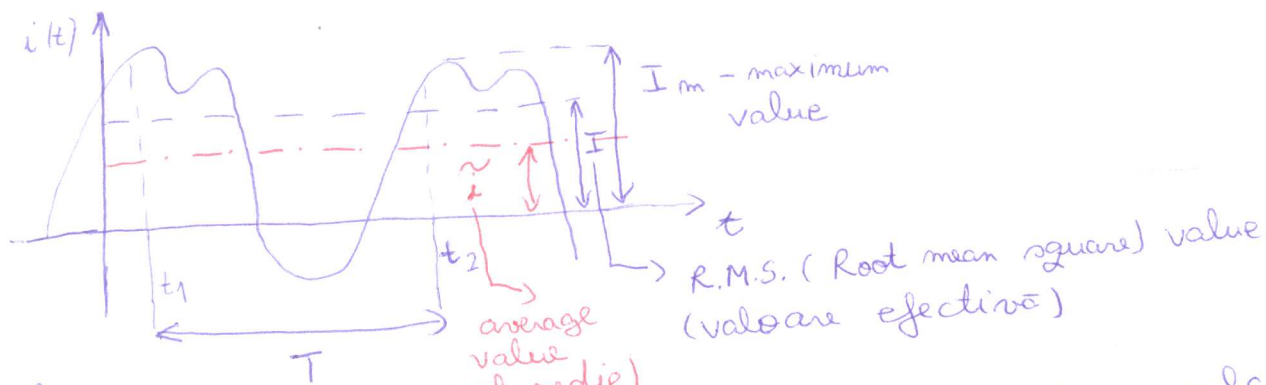 i(t)
I m - maximum
value
I
ĩ
t
t1
t2
R.M.S. (Root mean square) value
(valoare efectivă)
average
value
T